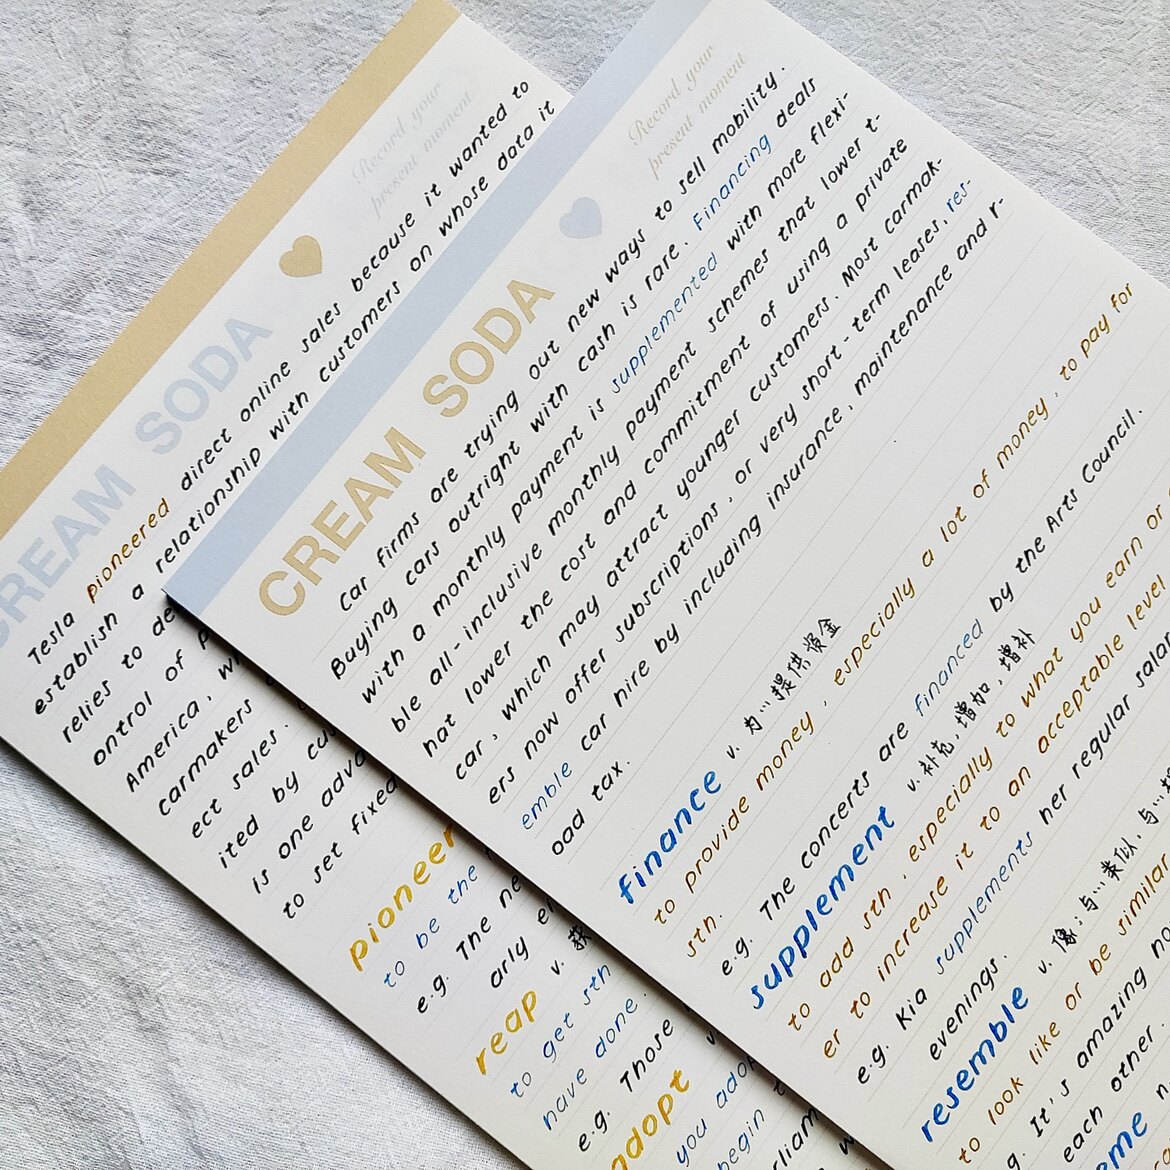 Record your
present moment
CREAM SODA
Tesla pioneered direct online sales because it wanted to
establish a relationship with customers on whose data it
relies to de
ontrol of p
America, wh
carmakers
ect sales.
ited by cu
is one adva
to set fixed
pioneer
to be the
e.g. The ne
arly e
reap v. 获
to get sth
have done.
e.g. Those
adopt v
you adop
begin t
rliam
Record your
present moment
CREAM SODA
Car firms are trying out new ways to sell mobility.
Buying cars outright with cash is rare. Financing deals
with a monthly payment is supplemented with more flexi-
ble all-inclusive monthly payment schemes that lower t-
hat lower the cost and commitment of using a private
car, which may attract younger customers. Most carmak-
ers now offer subscriptions, or very short-term leases, res-
emble car hire by including insurance, maintenance and r-
oad tax.
finance v. 为…提供资金
to provide money, especially a lot of money, to pay for
sth.
e.g. The concerts are financed by the Arts Council.
supplement v. 补充,增加,增补
to add sth, especially to what you earn or
er to increase it to an acceptable level
e.g. Kia supplements her regular salar
evenings.
resemble v. 像;与…类似,与…
to look like or be similar
g. It's amazing no
each other
ome